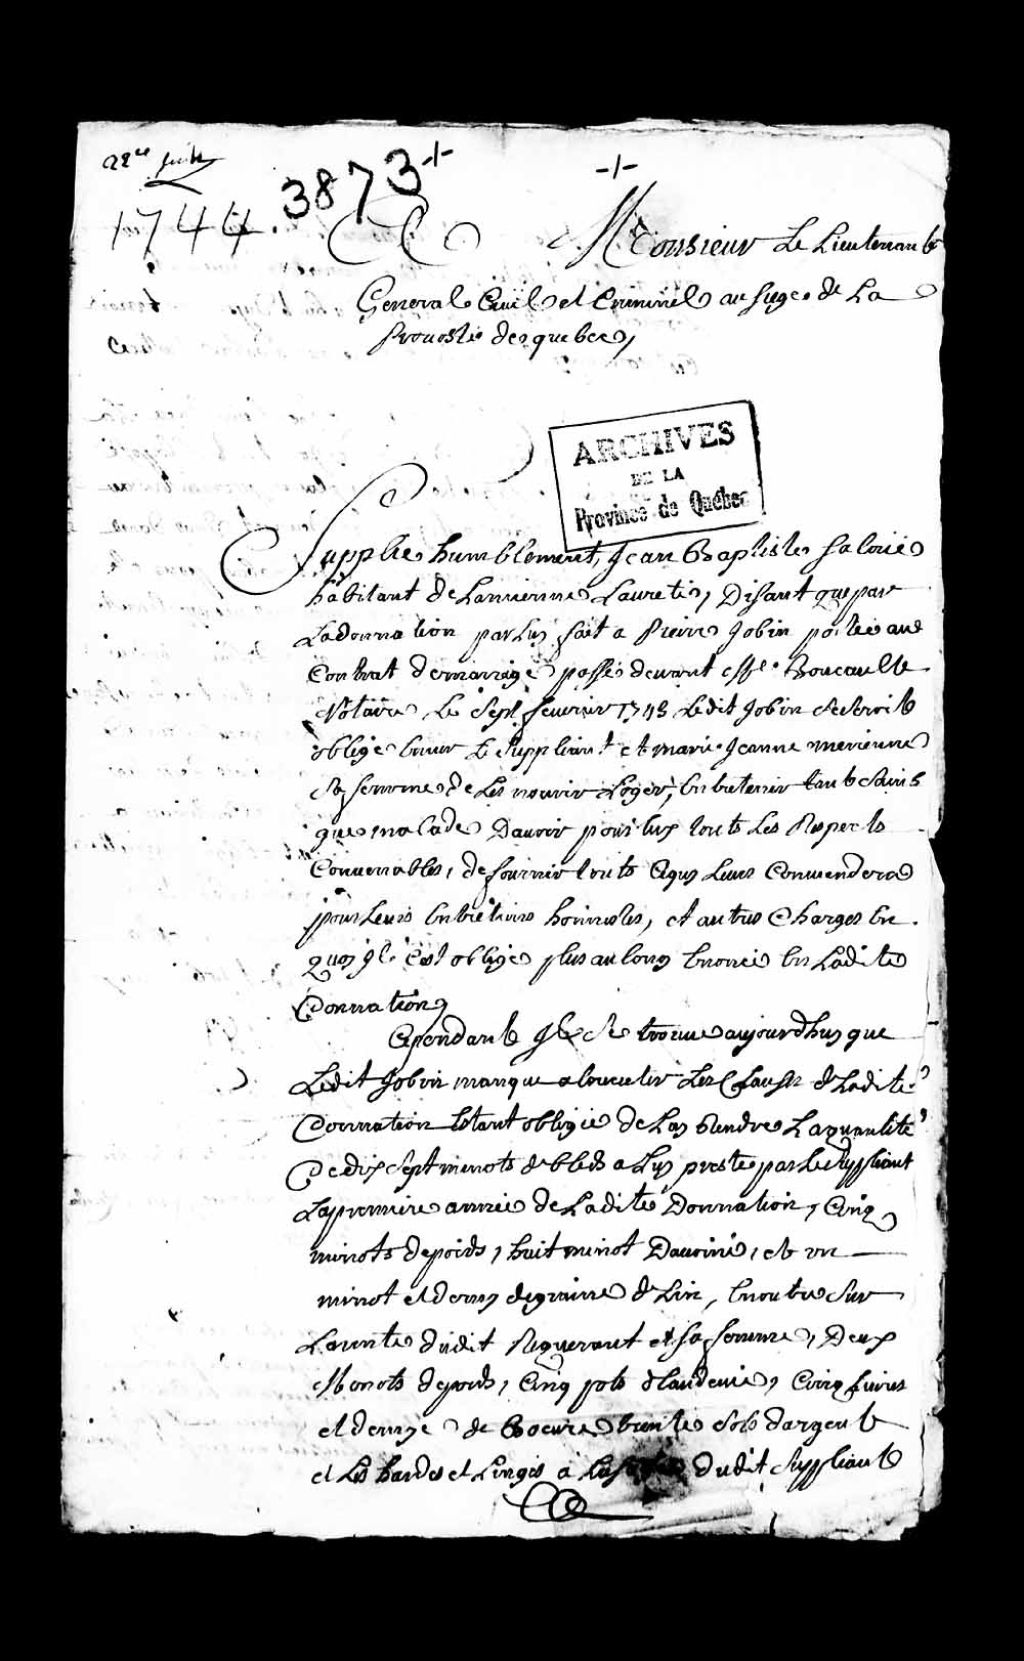 22e juillet
1744.
3873
Monsieur Le Lieutenant
General Civil et Criminel au siege de La
prouosté de quebec,
ARCHIVES
DE LA
Province de Québec
Supplie humblement, Jean Baptiste Salouié
habitant de Lancienne Laurette, Disant que par
La donnation par Luy fait a Pierre Jobin portée aud
Contrat de mariage passé deuant Me Boucault
Notaire Le Sept feurier 1743 Ledit Jobin Seseroit
obligé Enuer Le Suppliant et marie Jeanne merienne
Sa femme de Les nourir Loger, Entretenir tant Sains
que malade Dauoir pour Eux touts Les Respects
Conuenables, de fournir touts Cequy Leurs Conuiendera
pour Leurs Entretiens honnestes, et autres Charges En
quoy Jl Cest obligé plus au long Enoncé En Ladite
Donnation,
Cependant Jl Se trouue aujourdhuy que
Ledit Jobin manque a Executer Les Clauses de Ladite
Donnation Estant obligé de Luy Rendre La quantité
De dix Sept minots de bleds a Luy presté par Le Suppliant
La premiere année de Ladite Donnation, Cinq
minots de poids, huit minot Dauoine, et un
minot et demy de graine de Lin, En outre Sur
La rente dudit Requerant et Sa femme, Deux
Monots de poids, Cinq pots deaudeuie, Cinq Liures
et demye de Boeure trente Sols dargent
et Les hardes et Linges a dudit Suppliant